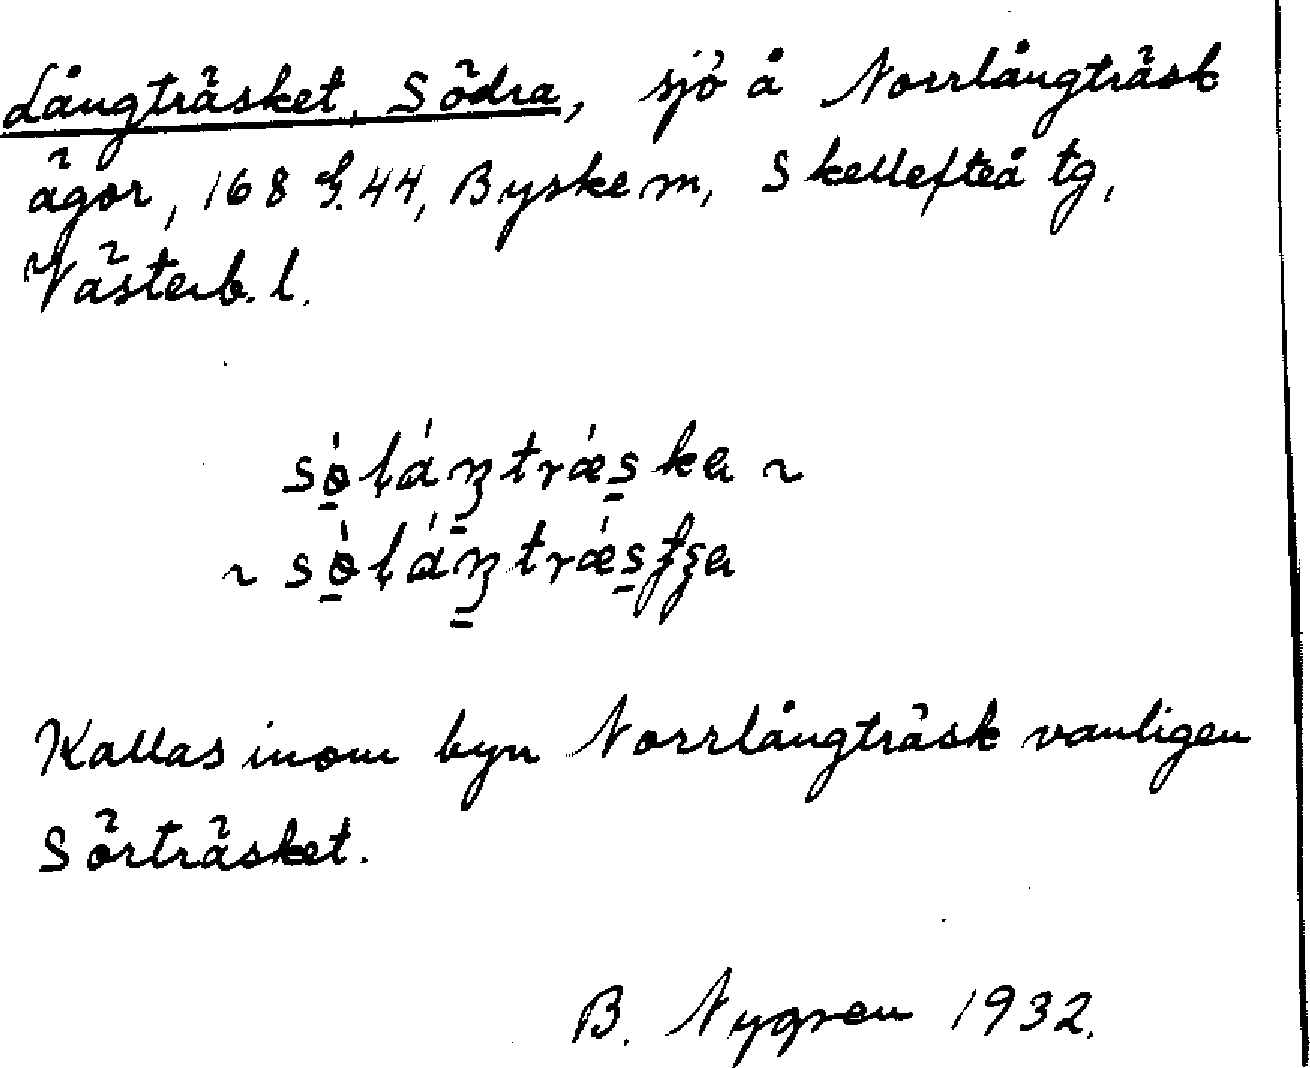 Långträsket, Södra, sjö å Norrlångträsk
ägor, 168 G. 44, Byske m, Skellefteå tg,
Västerb. l.
~
~
Kallas inom byn Norrlångträsk vanligen
Sörträsket.
B. Nygren 1932.